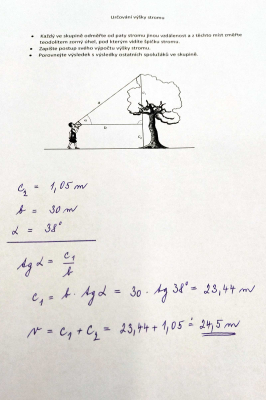 Určování výšky stromu
• Každý ve skupině odměřte od paty stromu jinou vzdálenost a z těchto míst změřte
teodolitem zorný úhel, pod kterým vidíte špičku stromu.
• Zapište postup svého výpočtu výšky stromu.
• Porovnejte výsledek s výsledky ostatních spolužáků ve skupině.
c₂ = 1,05 m
b = 30 m
α = 38°
tg α = c₁/b
c₁ = b · tg α = 30 · tg 38° = 23,44 m
v = c₁ + c₂ = 23,44 + 1,05 ≐ 24,5 m